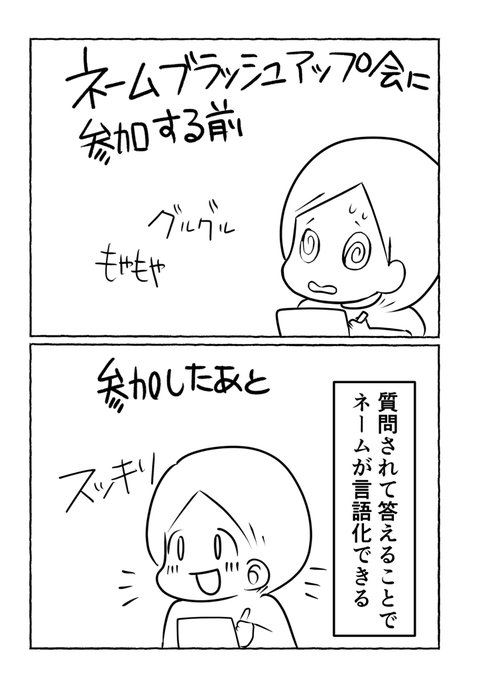 ネームブラッシュアップ会に
参加する前
グルグル
もやもや
参加したあと
質問されて答えることで
ネームが言語化できる
スッキリ